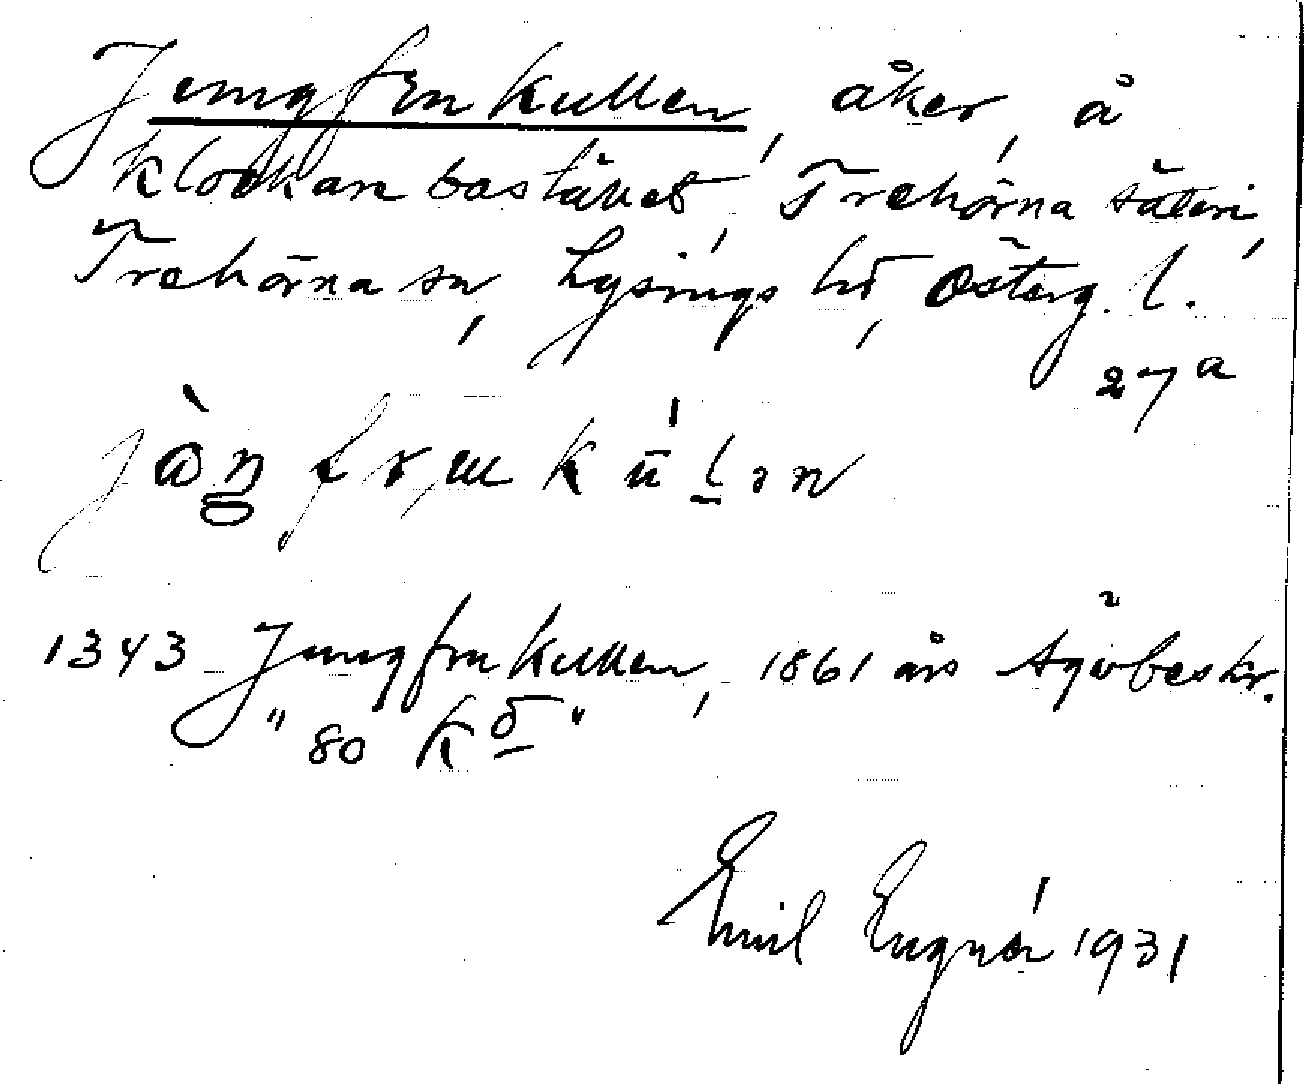 Jungfrukullen, åker, å
klockarebostället, Trehörna säteri,
Trehörna sn, Lysings hd, Österg. l.
27a
1343 Jungfrukullen, 1861 års Ägobeskr.
"80 k
Emil Engnér 1931